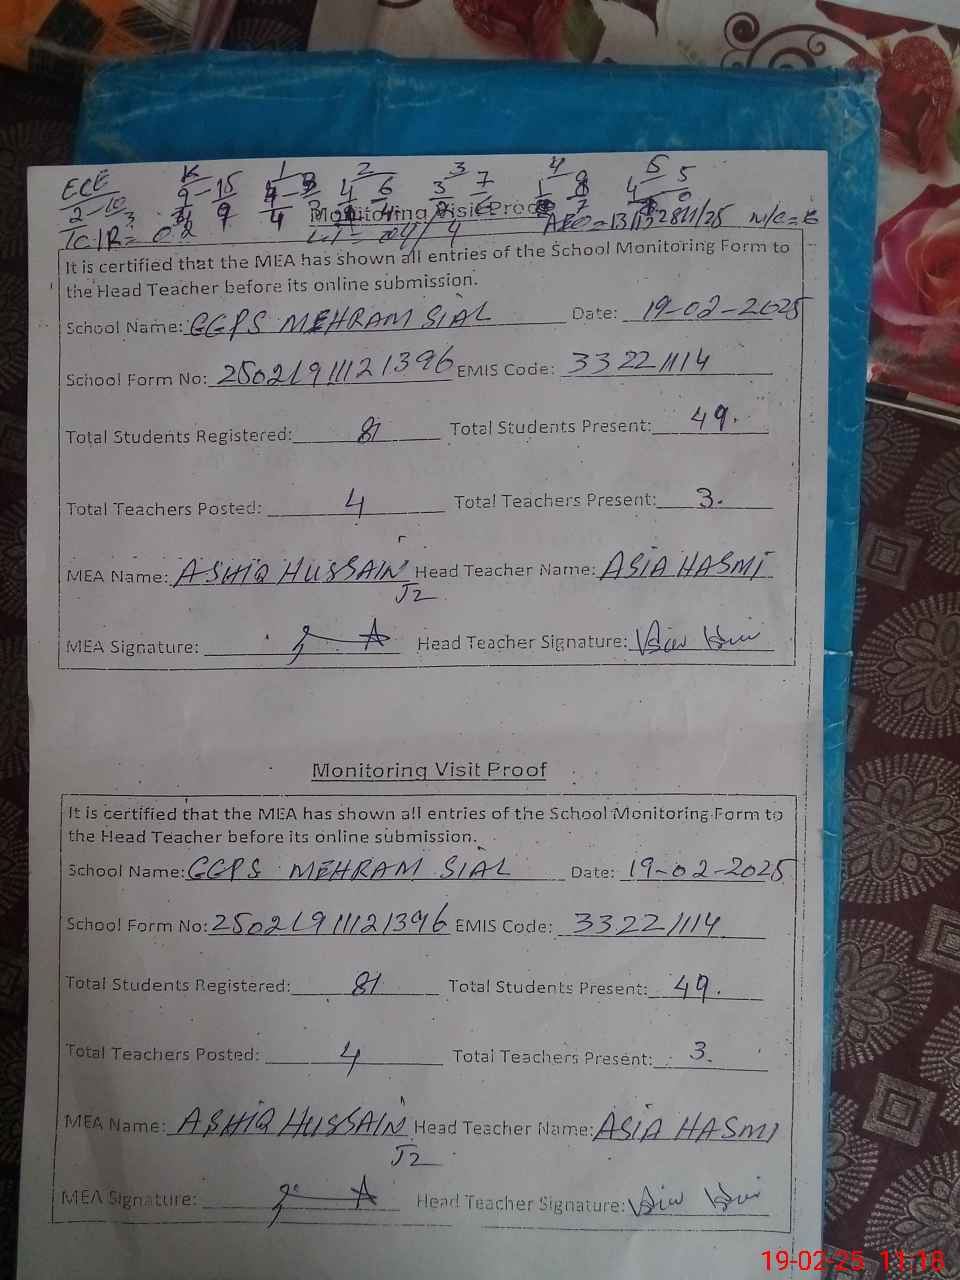 ECE K 1 2 3 4 5
Monitoring Visit Proof
It is certified that the MEA has shown all entries of the School Monitoring Form to
the Head Teacher before its online submission.
School Name: GGPS MEHRAM SIAL Date: 19-02-2025
School Form No: 25021911121396 EMIS Code: 33221114
Total Students Registered: 81 Total Students Present: 49.
Total Teachers Posted: 4 Total Teachers Present: 3.
MEA Name: ASHIQ HUSSAIN Head Teacher Name: ASIA HASMI
J2
MEA Signature: Head Teacher Signature:
Monitoring Visit Proof
It is certified that the MEA has shown all entries of the School Monitoring Form to
the Head Teacher before its online submission.
School Name: GGPS MEHRAM SIAL Date: 19-02-2025
School Form No: 25021911121396 EMIS Code: 33221114
Total Students Registered: 81 Total Students Present: 49.
Total Teachers Posted: 4 Total Teachers Present: 3.
MEA Name: ASHIQ HUSSAIN Head Teacher Name: ASIA HASMI
J2
MEA Signature: Head Teacher Signature:
19-02-25 11:18